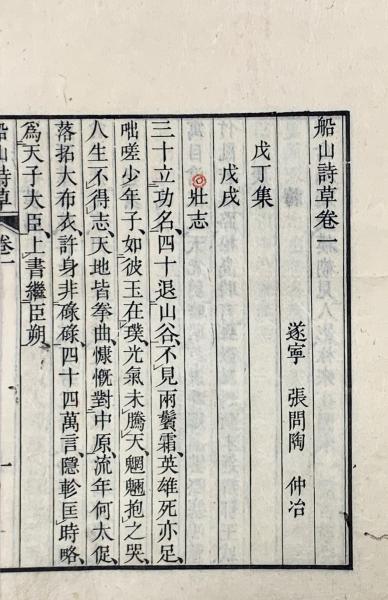 船山詩草卷一
遂寧　張問陶　仲冶
戊丁集
戊戌
壯志
三十立功名四十退山谷不見兩鬢霜英雄死亦足
咄嗟少年子如彼玉在璞光氣未騰天魍魎抱之哭
人生不得志天地皆拳曲慷慨對中原流年何太促
落拓大布衣許身非碌碌四十四萬言隱軫匡時略
為天子大臣上書繼臣朔
船山詩草　卷一　一